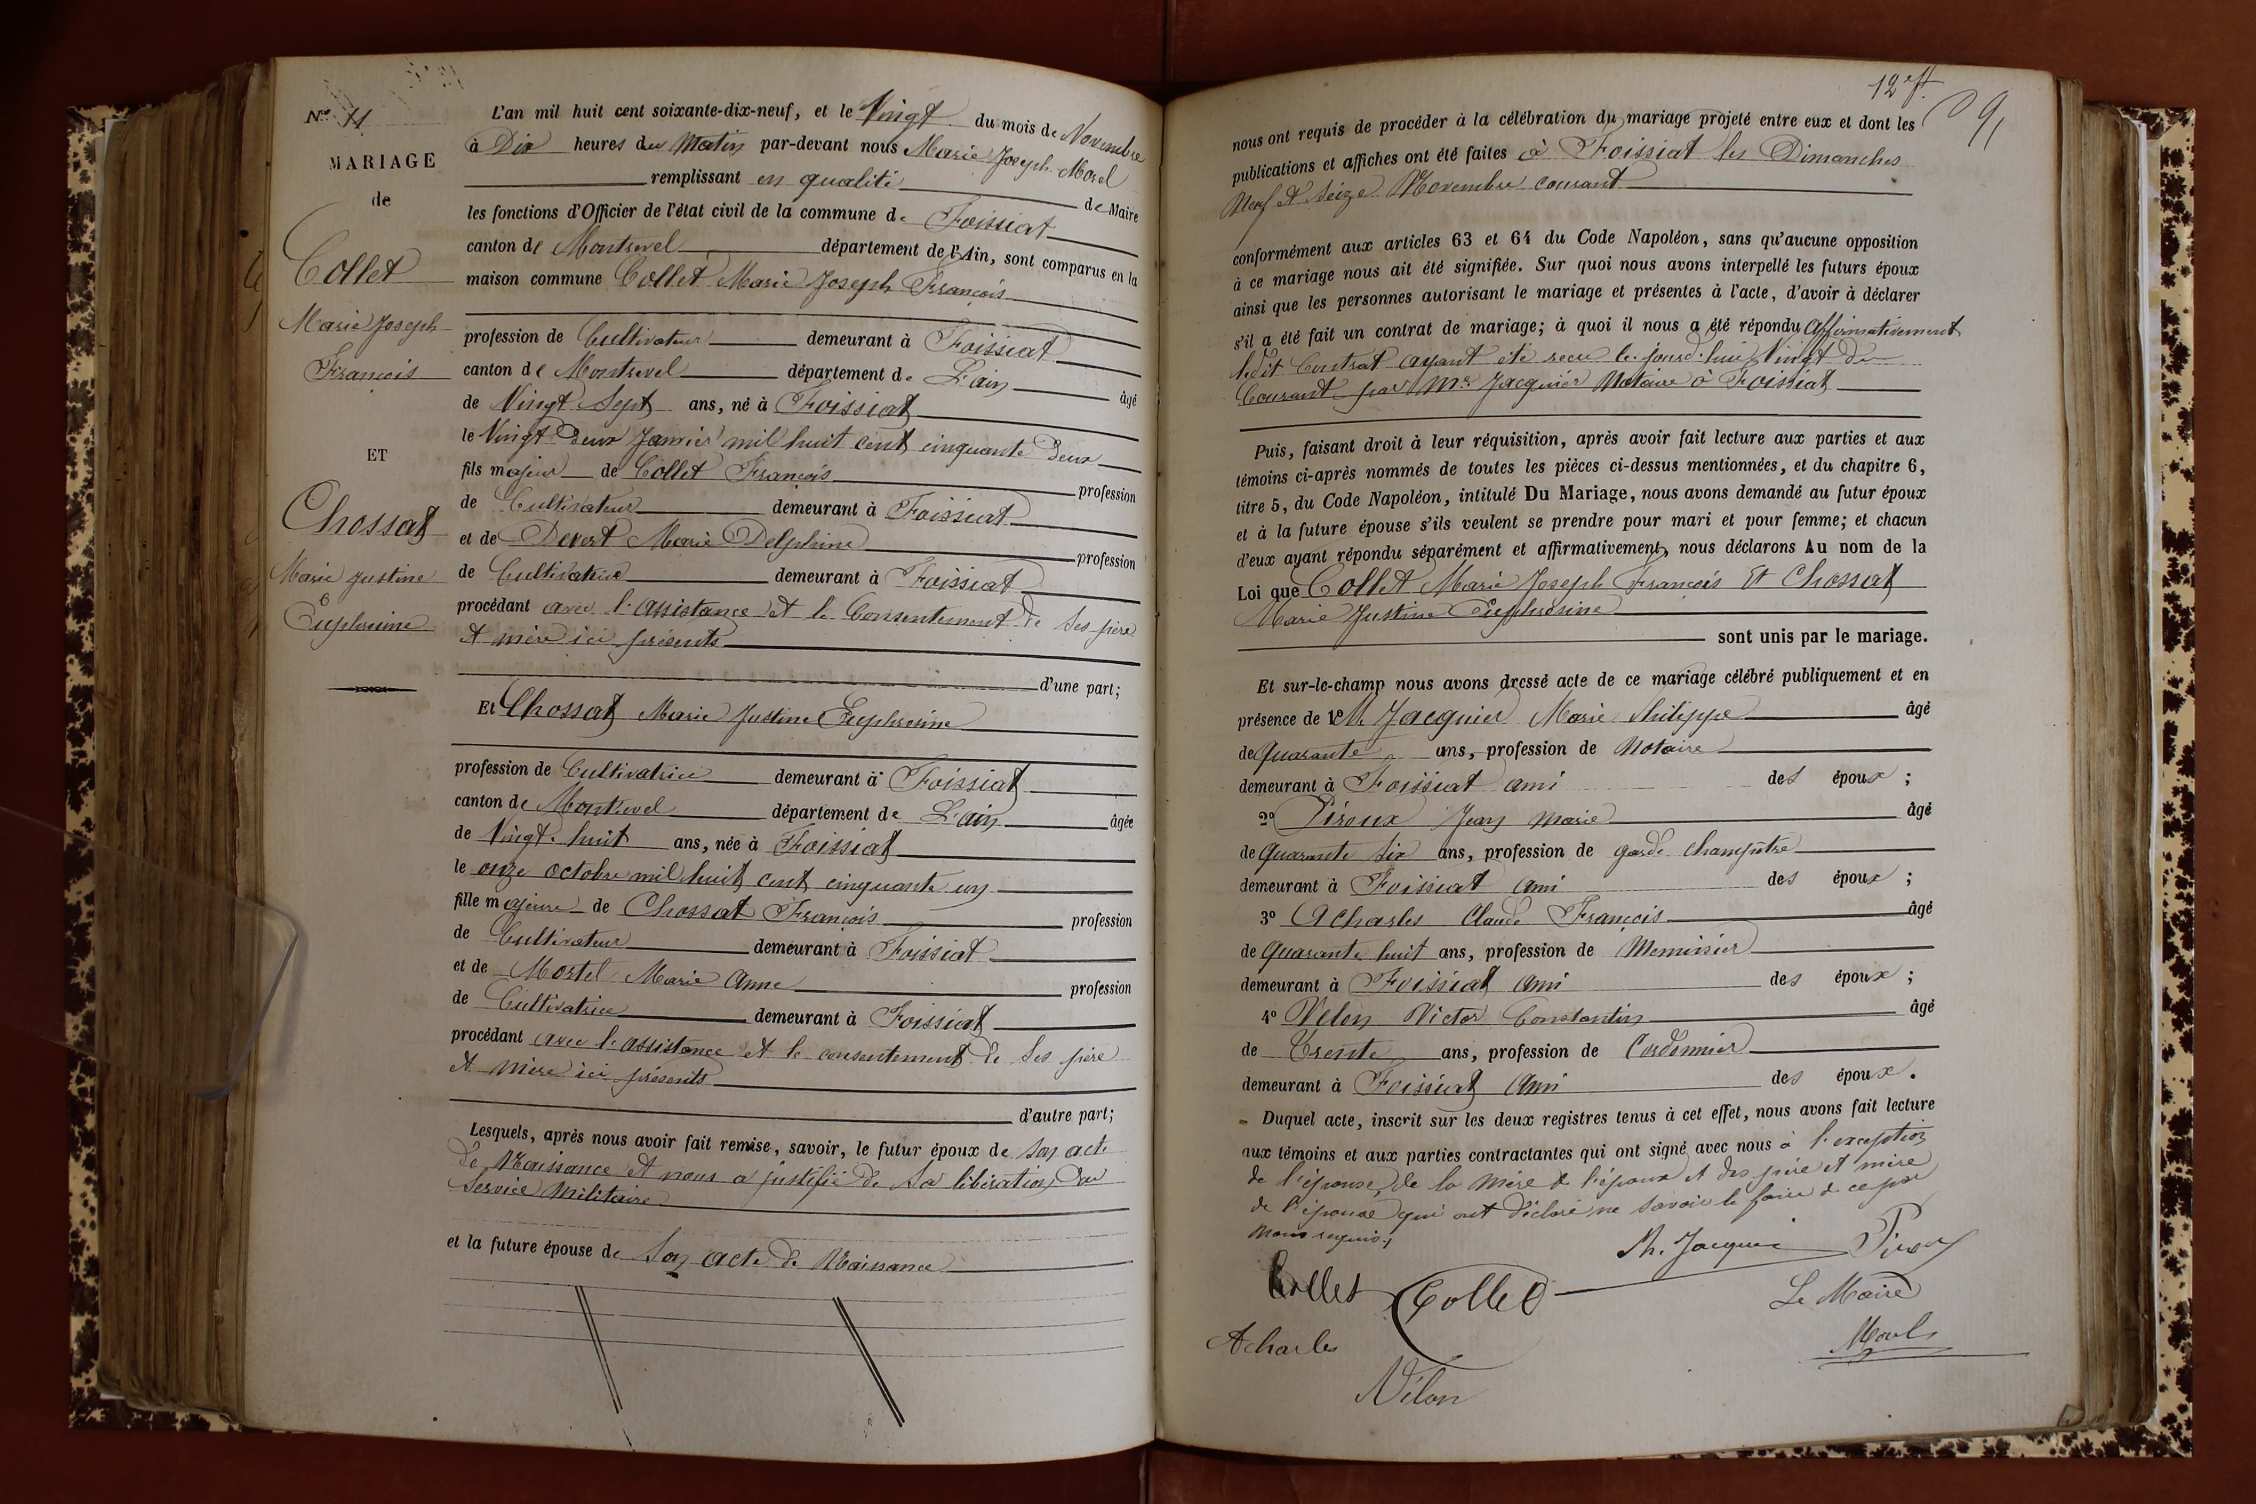 No 11
MARIAGE
de
Collet
Marie Joseph
François
ET
Chossat
Marie Justine
Euphrosine
L'an mil huit cent soixante-dix-neuf, et le Vingt du mois de Novembre
à Dix heures du Matin par-devant nous Marie Joseph Morel
remplissant en qualité de Maire
les fonctions d'Officier de l'état civil de la commune de Foissiat
canton de Montrevel département de l'Ain, sont comparus en la
maison commune Collet Marie Joseph François
profession de Cultivateur demeurant à Foissiat
canton de Montrevel département de L'ain âgé
de Vingt Sept ans, né à Foissiat
le Vingt Deux Janvier mil huit cent cinquante Deux
fils majeur de Collet François profession
de Cultivateur demeurant à Foissiat
et de Marie Delphine profession
de Cultivatrice demeurant à Foissiat
procédant avec l'assistance et le Consentement de ses père
et mère ici présents
d'une part;
Et Chossat Marie Justine Euphrosine
profession de Cultivatrice demeurant à Foissiat
canton de Montrevel département de L'ain âgée
de Vingt-huit ans, née à Foissiat
le onze octobre mil huit cent cinquante un
fille majeure de Chossat François profession
de Cultivateur demeurant à Foissiat
et de Mortel Marie Anne profession
de Cultivatrice demeurant à Foissiat
procédant avec l'assistance et le consentement de ses père
et mère ici présents
d'autre part;
Lesquels, après nous avoir fait remise, savoir, le futur époux de son acte
de Naissance et nous a justifié de sa libération du
Service Militaire
et la future épouse de son acte de Naissance
12 eft
91
nous ont requis de procéder à la célébration du mariage projeté entre eux et dont les
publications et affiches ont été faites à Foissiat les Dimanches
Neuf et Seize Novembre courant
conformément aux articles 63 et 64 du Code Napoléon, sans qu'aucune opposition
à ce mariage nous ait été signifiée. Sur quoi nous avons interpellé les futurs époux
ainsi que les personnes autorisant le mariage et présentes à l'acte, d'avoir à déclarer
s'il a été fait un contrat de mariage; à quoi il nous a été répondu affirmativement
ledit Contrat ayant été recu le jourd'hui Vingt du
Courant par Me Jacquier Notaire à Foissiat
Puis, faisant droit à leur réquisition, après avoir fait lecture aux parties et aux
témoins ci-après nommés de toutes les pièces ci-dessus mentionnées, et du chapitre 6,
titre 5, du Code Napoléon, intitulé Du Mariage, nous avons demandé au futur époux
et à la future épouse s'ils veulent se prendre pour mari et pour femme; et chacun
d'eux ayant répondu séparément et affirmativement, nous déclarons Au nom de la
Loi que Collet Marie Joseph François Et Chossat
Marie Justine Euphrosine
sont unis par le mariage.
Et sur-le-champ nous avons dressé acte de ce mariage célébré publiquement et en
présence de 1º M. Jacquier Marie Philippe âgé
de Quarante ans, profession de Notaire
demeurant à Foissiat ami des époux ;
2º Piroux Jean Marie âgé
de Quarante Six ans, profession de garde Champêtre
demeurant à Foissiat ami des époux ;
3º Acharles Claude François âgé
de Quarante huit ans, profession de Menuisier
demeurant à Foissiat ami des époux ;
4º Velon Victor Constantin âgé
de Trente ans, profession de Cordonnier
demeurant à Foissiat ami des époux.
Duquel acte, inscrit sur les deux registres tenus à cet effet, nous avons fait lecture
aux témoins et aux parties contractantes qui ont signé avec nous à l'exception
de l'épouse, de la mère de l'époux et des père et mère
de l'épouse qui ont déclaré ne savoir le faire de ce par
nous requis.
Ph. Jacquier Piroux
Collet Collet
Le Maire
Acharles
Morel
Vélon